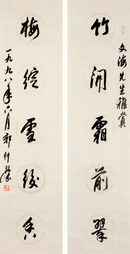 文海先生雅賞
竹開霜前翠
梅綻雪後香
一九九八年六月